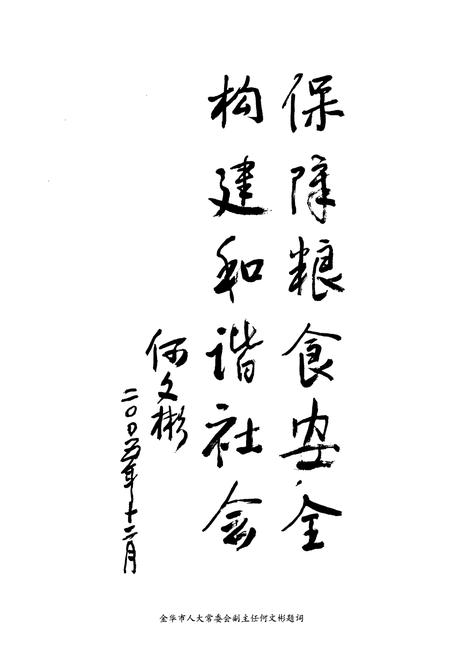 保障粮食安全
构建和谐社会
何文彬
二〇〇五年十二月
金华市人大常委会副主任何文彬题词